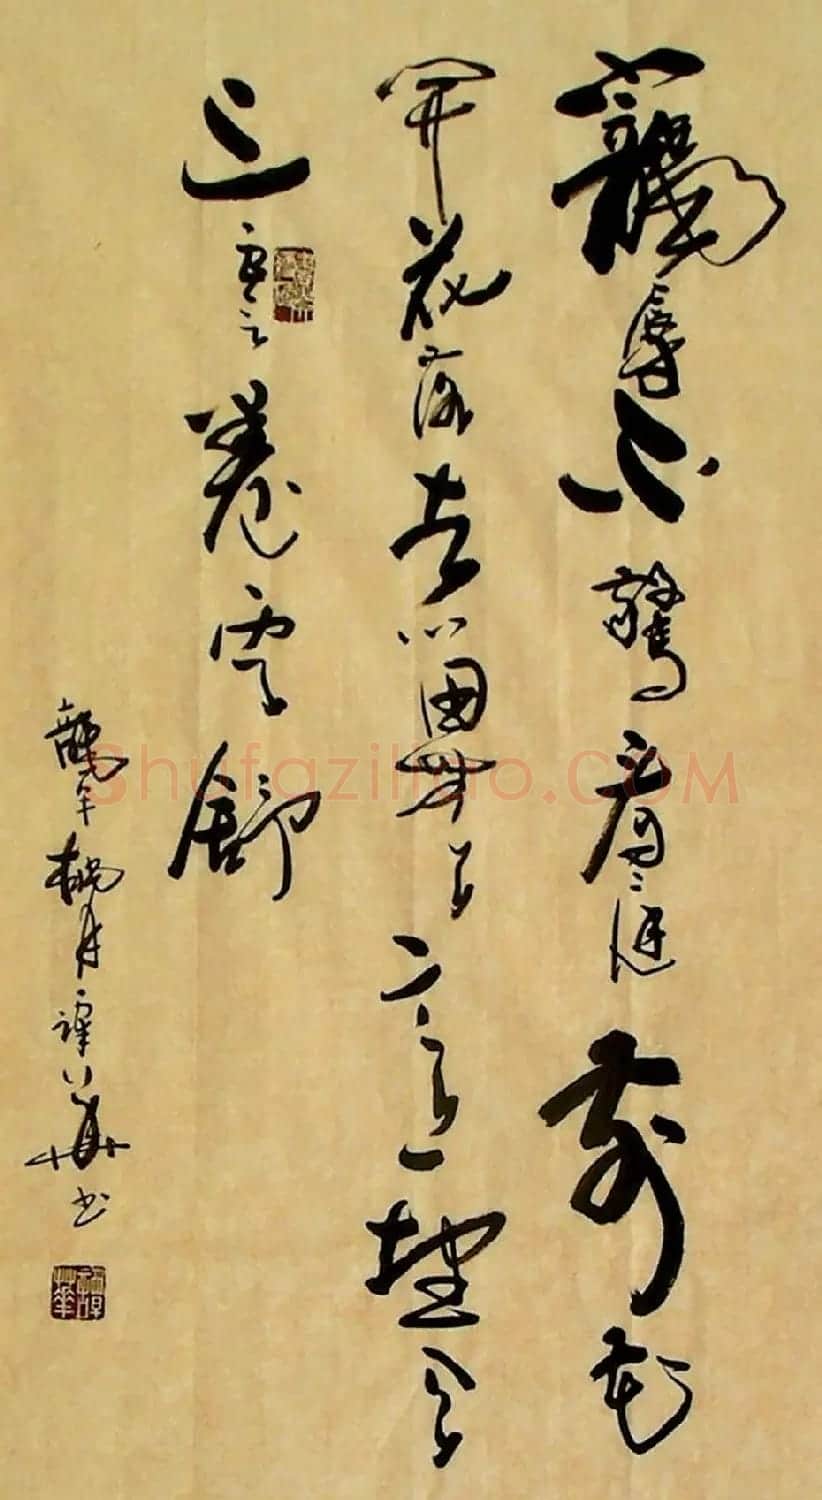 寵辱不驚看庭前花
開花落去留無意望天
上雲卷雲舒
龍年 月譚 華書
shufaziliao.com